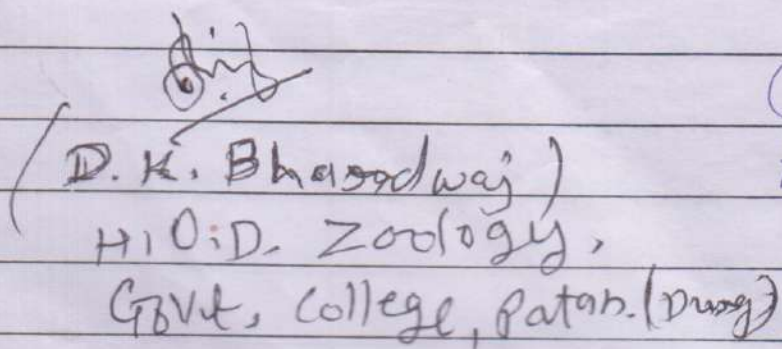 (D.K. Bhardwaj)
H.O.D. Zoology,
Govt, College, Patan. (Durg)